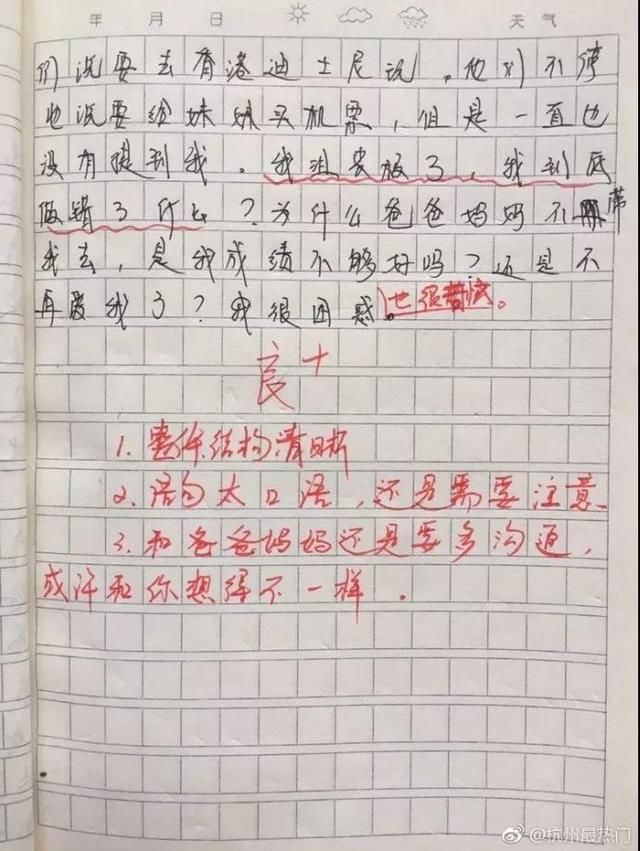 年 月 日 天气
们说要去香港迪士尼玩。他们不
也说要给妹妹买机票，但是一直也
没有提到我。我沮丧极了，我到底
做错了什么？为什么爸爸妈妈不带
我去，是我成绩不够好吗？还是不
再爱我了？我很困惑。也很
良+
1. 整体结构清晰
2. 语句太口语，还是需要注意
3. 和爸爸妈妈还是要多沟通，
或许和你想得不一样。
@杭州最热门